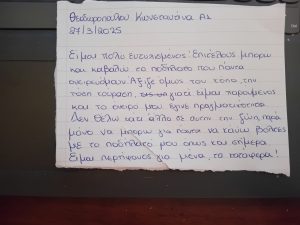 Θεοδωροπούλου Κωνσταντίνα Α2
27/3/2025
Είμαι πολύ ευτυχισμένος! Επιτέλους μπορώ
και καβαλώ το ποδήλατο που πάντα
ονειρευόμουν. Άξιζε όμως τον κόπο, την
τόση κούραση, γιατί είμαι
και το όνειρο μου έγινε πραγματικότητα.
Δεν θέλω κάτι άλλο σε αυτήν την ζωή παρά
μόνο να μπορώ για πάντα να κάνω βόλτες
με το ποδήλατο μου όπως και σήμερα.
Είμαι περήφανος για μένα, τα κατάφερα!